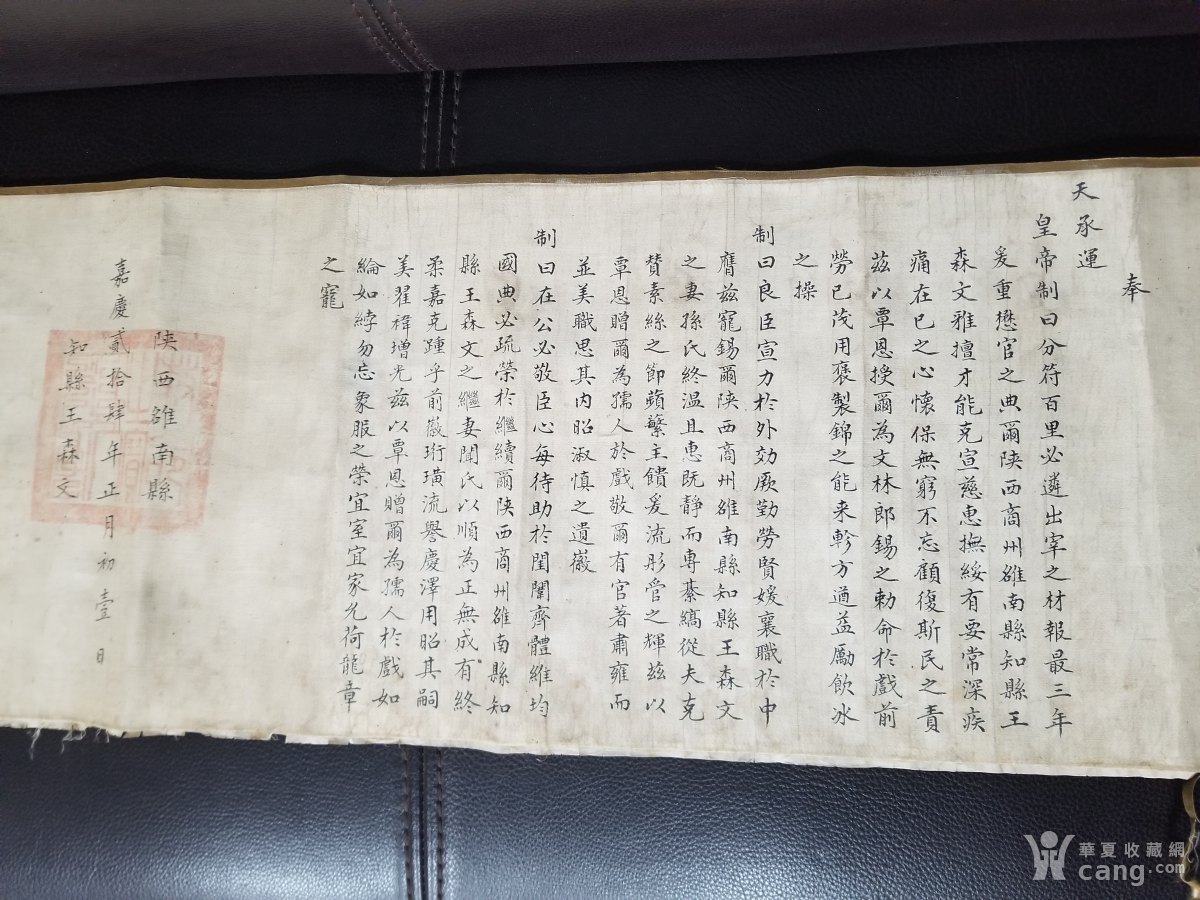 奉
天承運
皇帝制曰分符百里必遴出宰之材報最三年
爰重懋官之典爾陕西商州雒南縣知縣王
森文雅擅才能克宣慈惠撫綏有要常深疾
痛在已之心懷保無窮不忘顧復斯民之責
茲以覃恩授爾為文林郎錫之勅命於戲前
勞已茂用褒製錦之能来軫方遒益勵飲冰
之操
制曰良臣宣力於外効厥勤勞賢媛襄職於中
膺茲寵錫爾陕西商州雒南縣知縣王森文
之妻孫氏終温且惠既靜而專綦縞從夫克
贊素絲之節蘋蘩主饋爰流彤管之輝茲以
覃恩贈爾為孺人於戲敬爾有官著肅雍而
並美職思其内昭淑慎之遺徽
制曰在公必敬臣心每待助於閨闈齊體維均
國典必疏榮於繼續爾陕西商州雒南縣知
縣王森文之繼妻聞氏以順為正無成有終
柔嘉克踵乎前徽珩璜流譽慶澤用昭其嗣
美翟褘增光茲以覃恩贈爾為孺人於戲如
綸如綍勿忘象服之榮宜室宜家允荷龍章
之寵
陕西雒南縣
嘉慶貳拾肆年正月初壹日
知縣王森文
華夏收藏網
cang.com